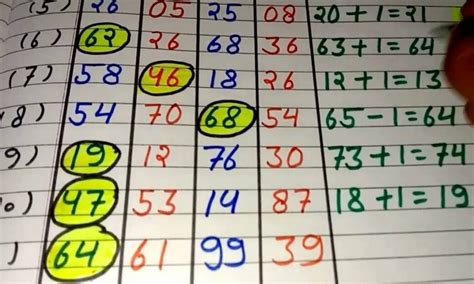 (5) 26 05 25 08 20+1=21
(6) 62 26 68 36 63+1=64
(7) 58 46 18 26 12+1=13
8) 54 70 68 54 65-1=64
9) 19 12 76 30 73+1=74
0) 47 53 14 87 18+1=19
) 64 61 99 39